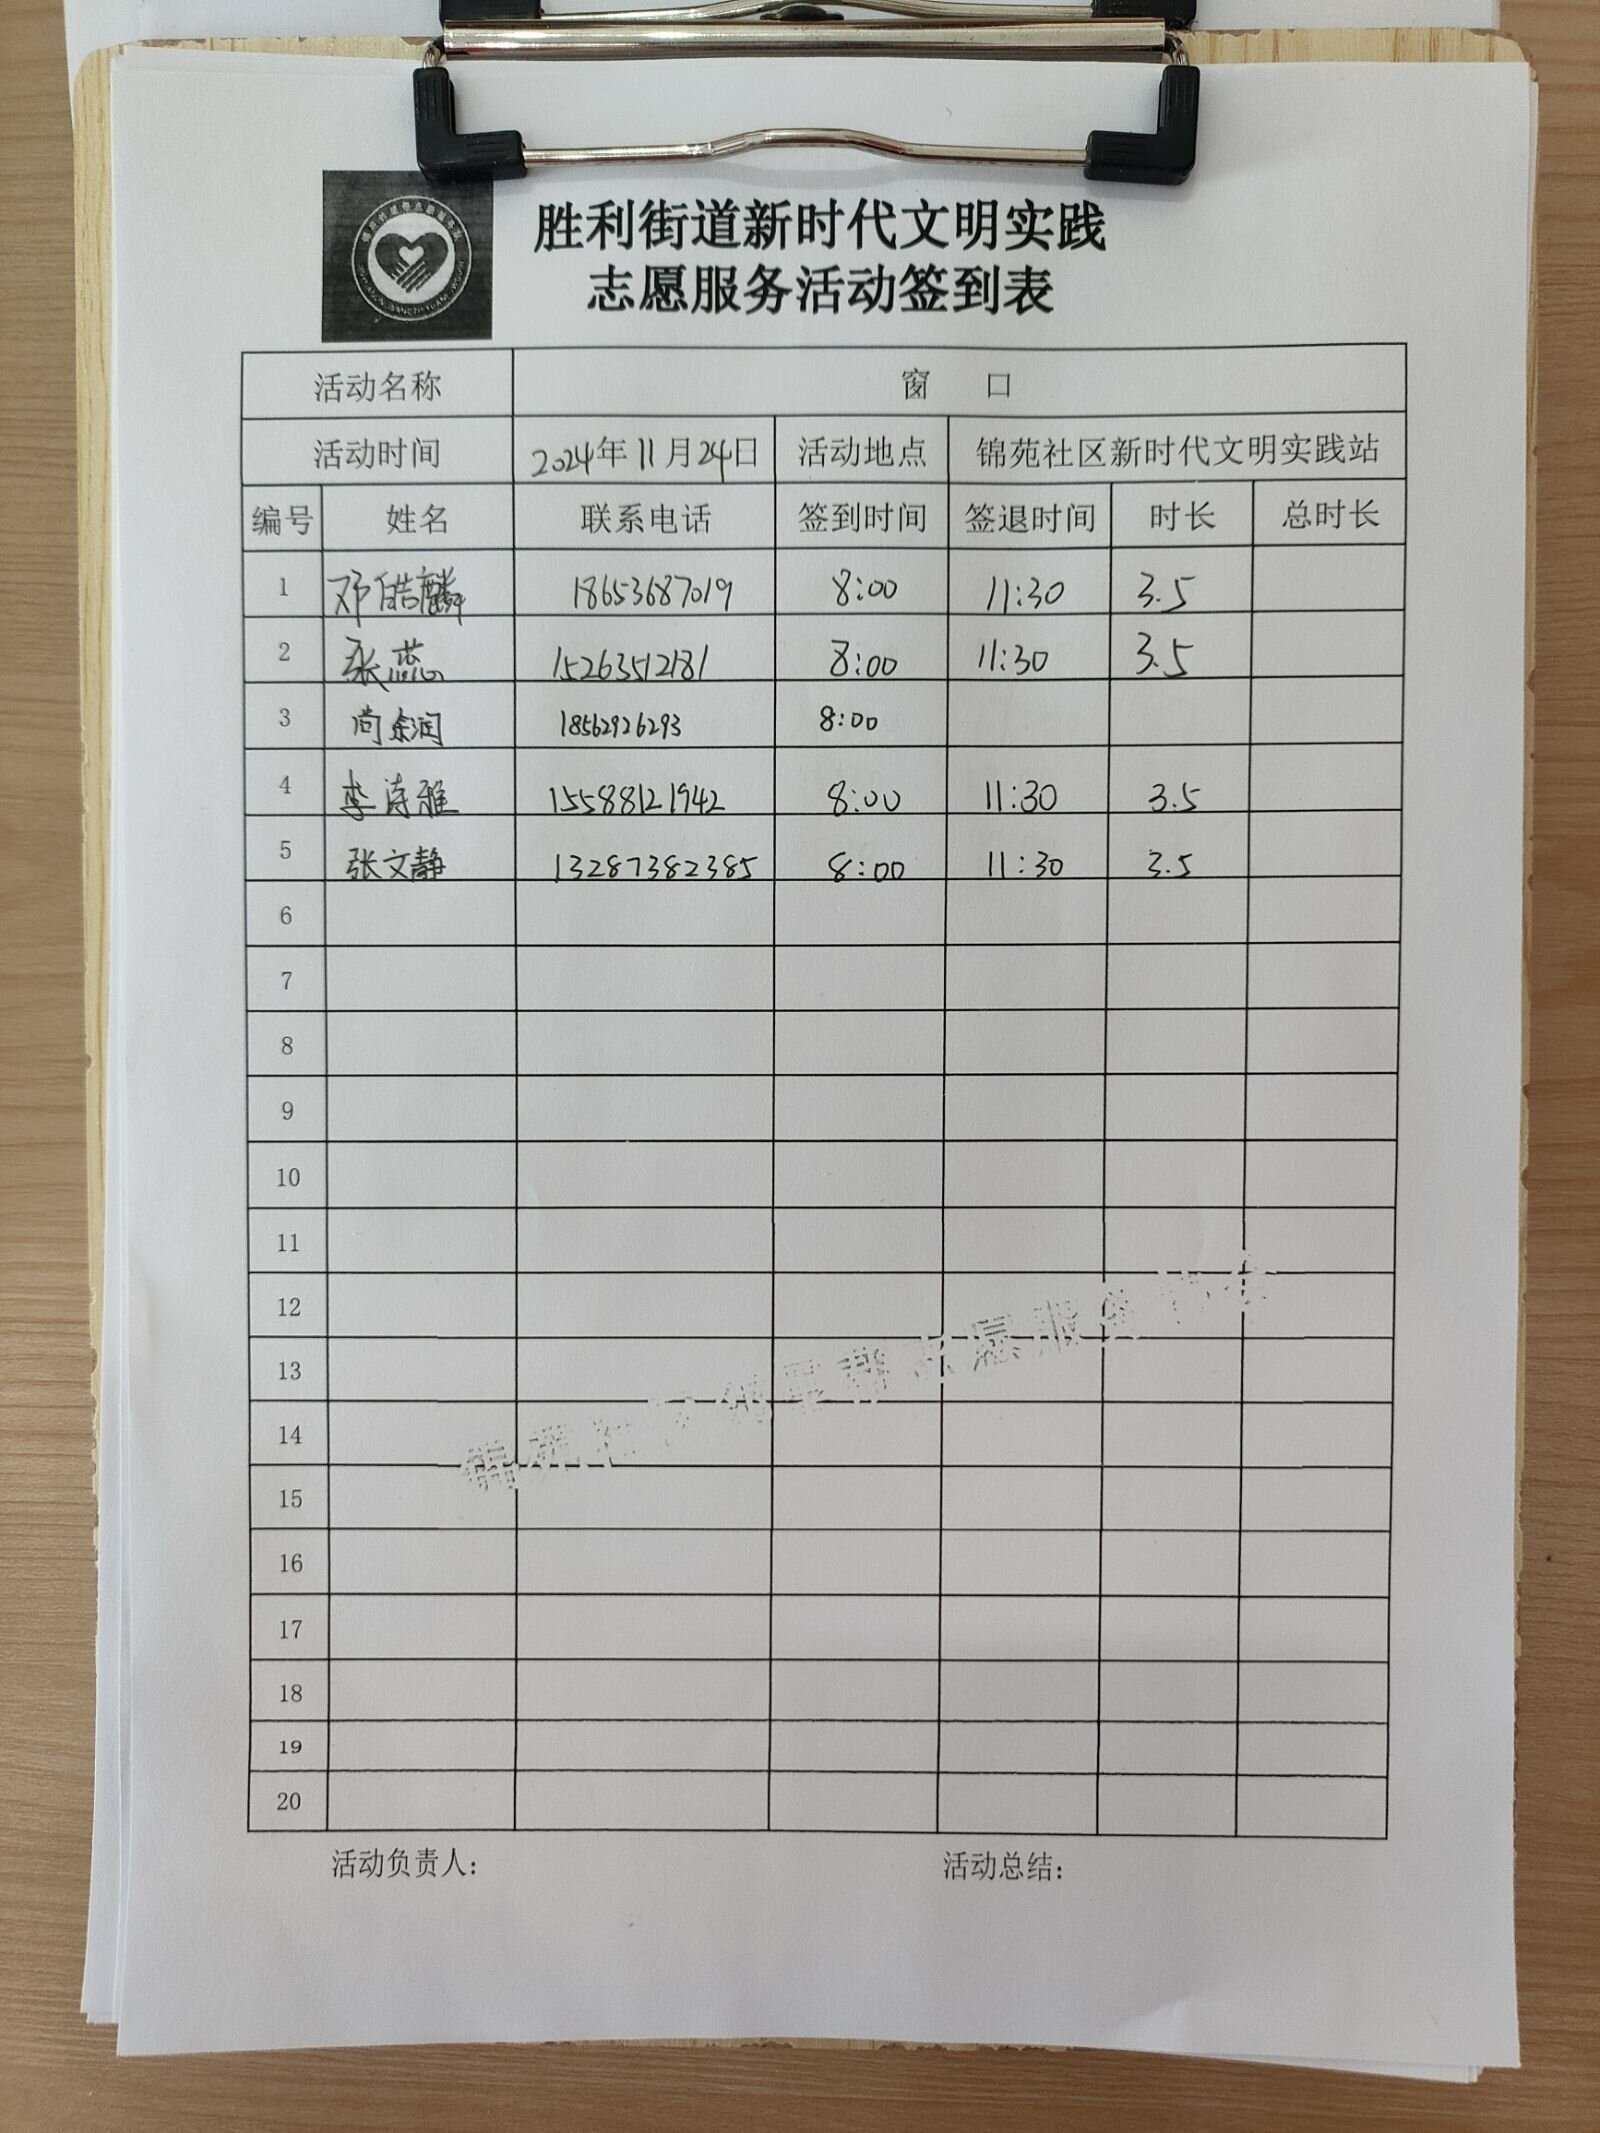 胜利街道新时代文明实践
志愿服务活动签到表
活动名称 窗 口
活动时间 2024年11月24日 活动地点 锦苑社区新时代文明实践站
编号 姓名 联系电话 签到时间 签退时间 时长 总时长
1 邓皓麟 18653687019 8:00 11:30 3.5
2 张蕊 15263512181 8:00 11:30 3.5
3 尚余润 18562926293 8:00
4 李诗雅 15588121942 8:00 11:30 3.5
5 张文静 13287382385 8:00 11:30 3.5
6
7
8
9
10
11
12
13
14
15
16
17
18
19
20
活动负责人:
活动总结: